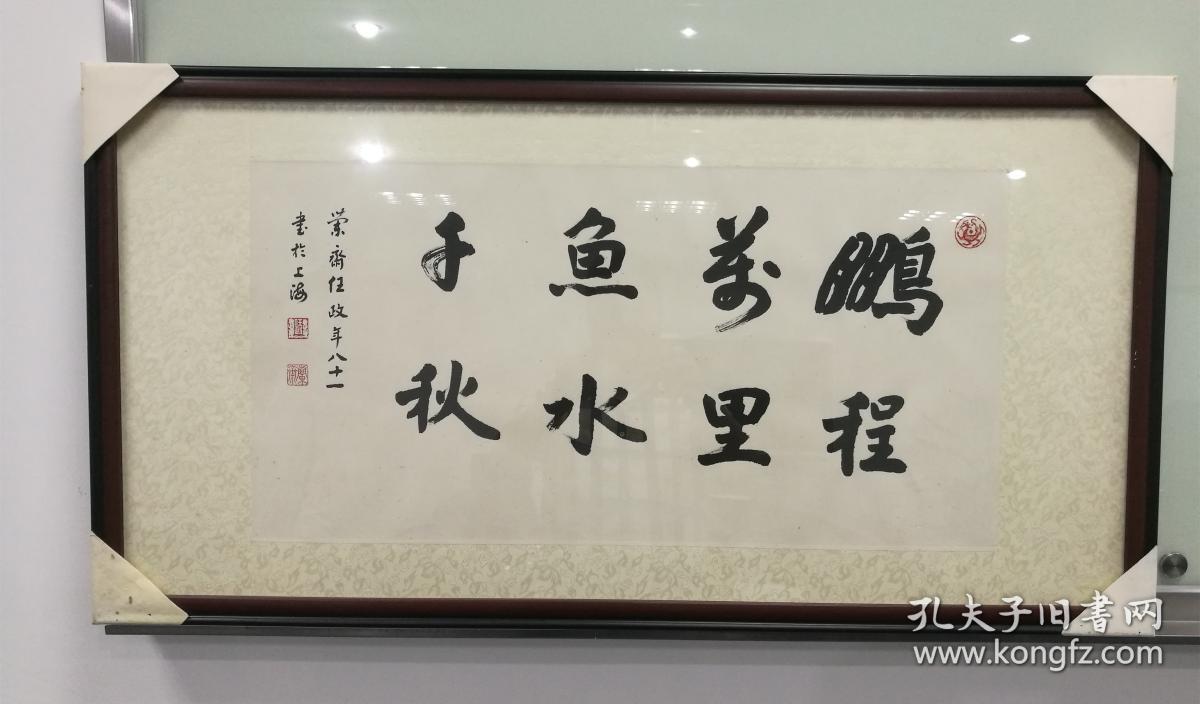 鵬程
萬里
魚水
千秋
榮齋任政年八十一
書於上海
孔夫子旧書网
www.kongfz.com